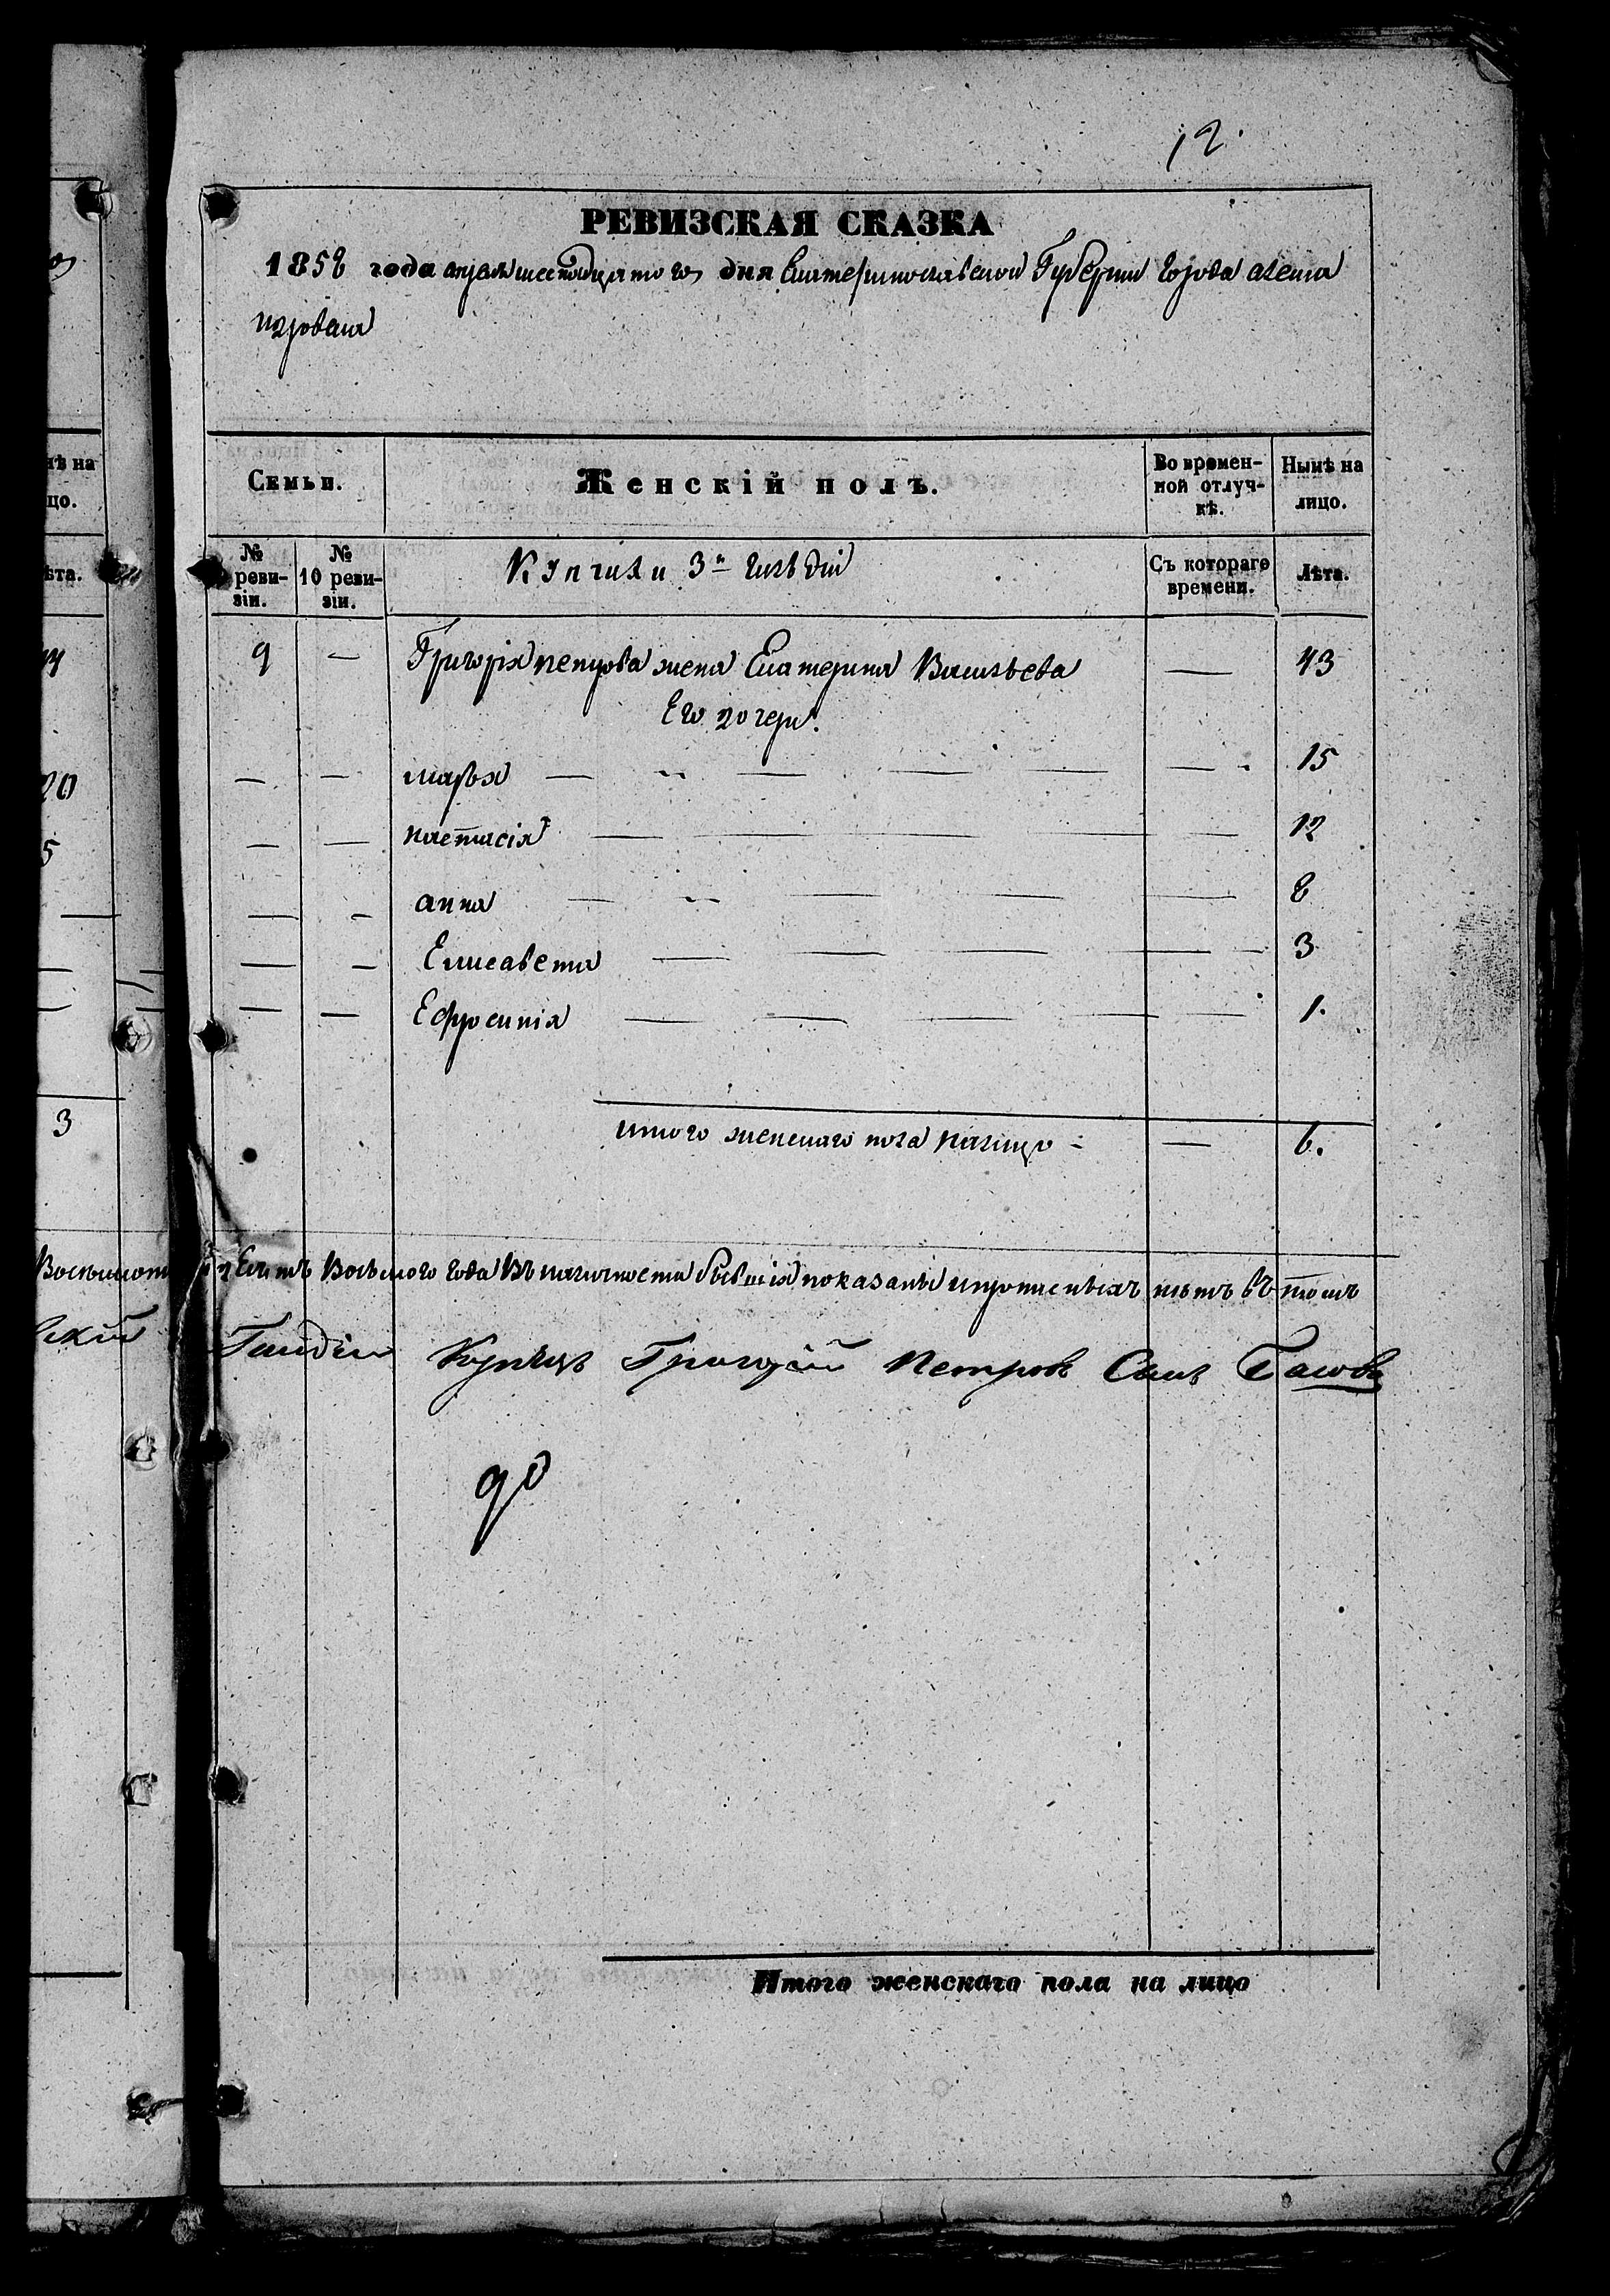 12.
РЕВИЗСКАЯ СКАЗКА
1858 года апреля шестнадцатого дня Екатеринославской Губернии города алека
Семьи.
Женскій полъ.
Во времен-
ной отлуч-
кѣ.
Нынѣ на
лицо.
№
реви-
зіи.
№
10 реви-
зіи.
Купчихи 3й гильдіи
Съ котораго
времени.
Лѣта.
9 — Григорія петрова жена Екатерина Васильева — 43
Его дочери:
марья — 15
настасія — 12
анна — 8
Елисавета — 3
Ефросинія — 1.
итого женскаго пола налицо — 6.
Восьмого года Въ наличности бывшія показаны ипрописныхъ нѣтъ въ томъ
Гильдіи Купецъ Григорій Петровъ Сынъ
Итого женскаго пола на лицо
нѣ на
цо.
ѣта.
20
5
3